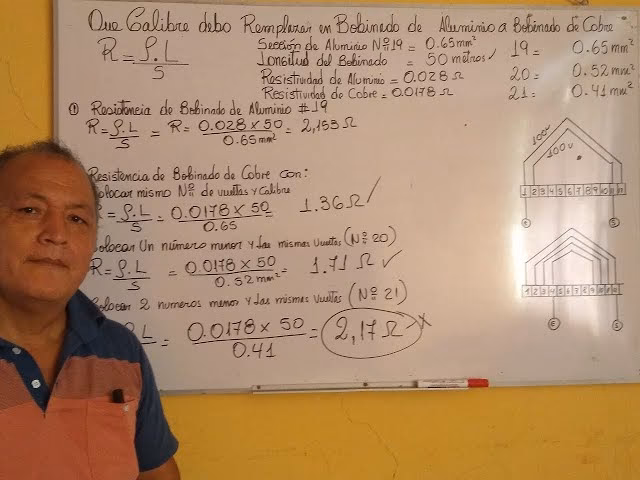 Que Calibre debo Remplazar en Bobinado de Aluminio a Bobinado de Cobre
R = ρ.L / S
Sección de Aluminio Nº 19 = 0.65 mm²
Longitud del Bobinado = 50 metros ✓
Resistividad de Aluminio = 0.028 Ω
Resistividad de Cobre = 0.0178 Ω
19 = 0.65 mm²
20 = 0.52 mm²
21 = 0.41 mm²
① Resistencia de Bobinado de Aluminio #19
R = ρ.L / S = R = 0.028 x 50 / 0.65 mm² = 2,153 Ω
Resistencia de Bobinado de Cobre con:
olocar mismo Nº de vueltas y Calibre
R = ρ.L / S = 0.0178 x 50 / 0.65 = 1.36 Ω ✓
olocar Un número menor y las mismas vueltas (Nº 20)
R = ρ.L / S = 0.0178 x 50 / 0.52 mm² = 1.71 Ω ✓
olocar 2 numeros menor y las mismas vueltas (Nº 21)
.L = 0.0178 x 50 / 0.41 = 2,17 Ω x
100v
100v
1 2 3 4 5 6 7 8 9 10 11 12
E S
1 2 3 4 5 6 7 8 9 10 11 12
E S